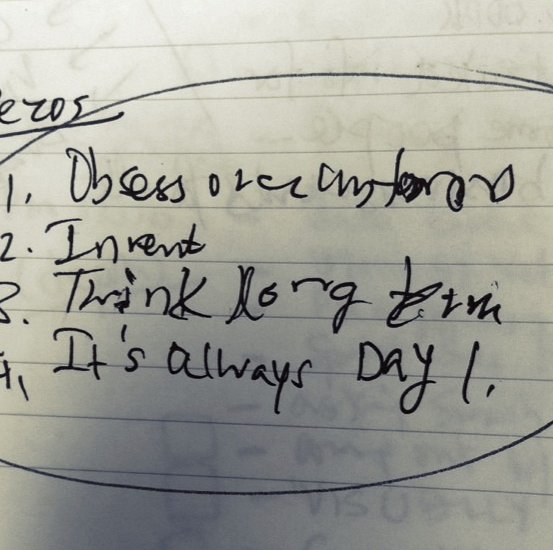 ezos
1. Obsess over customers
2. Invent
3. Think long term
4. It's always Day 1.